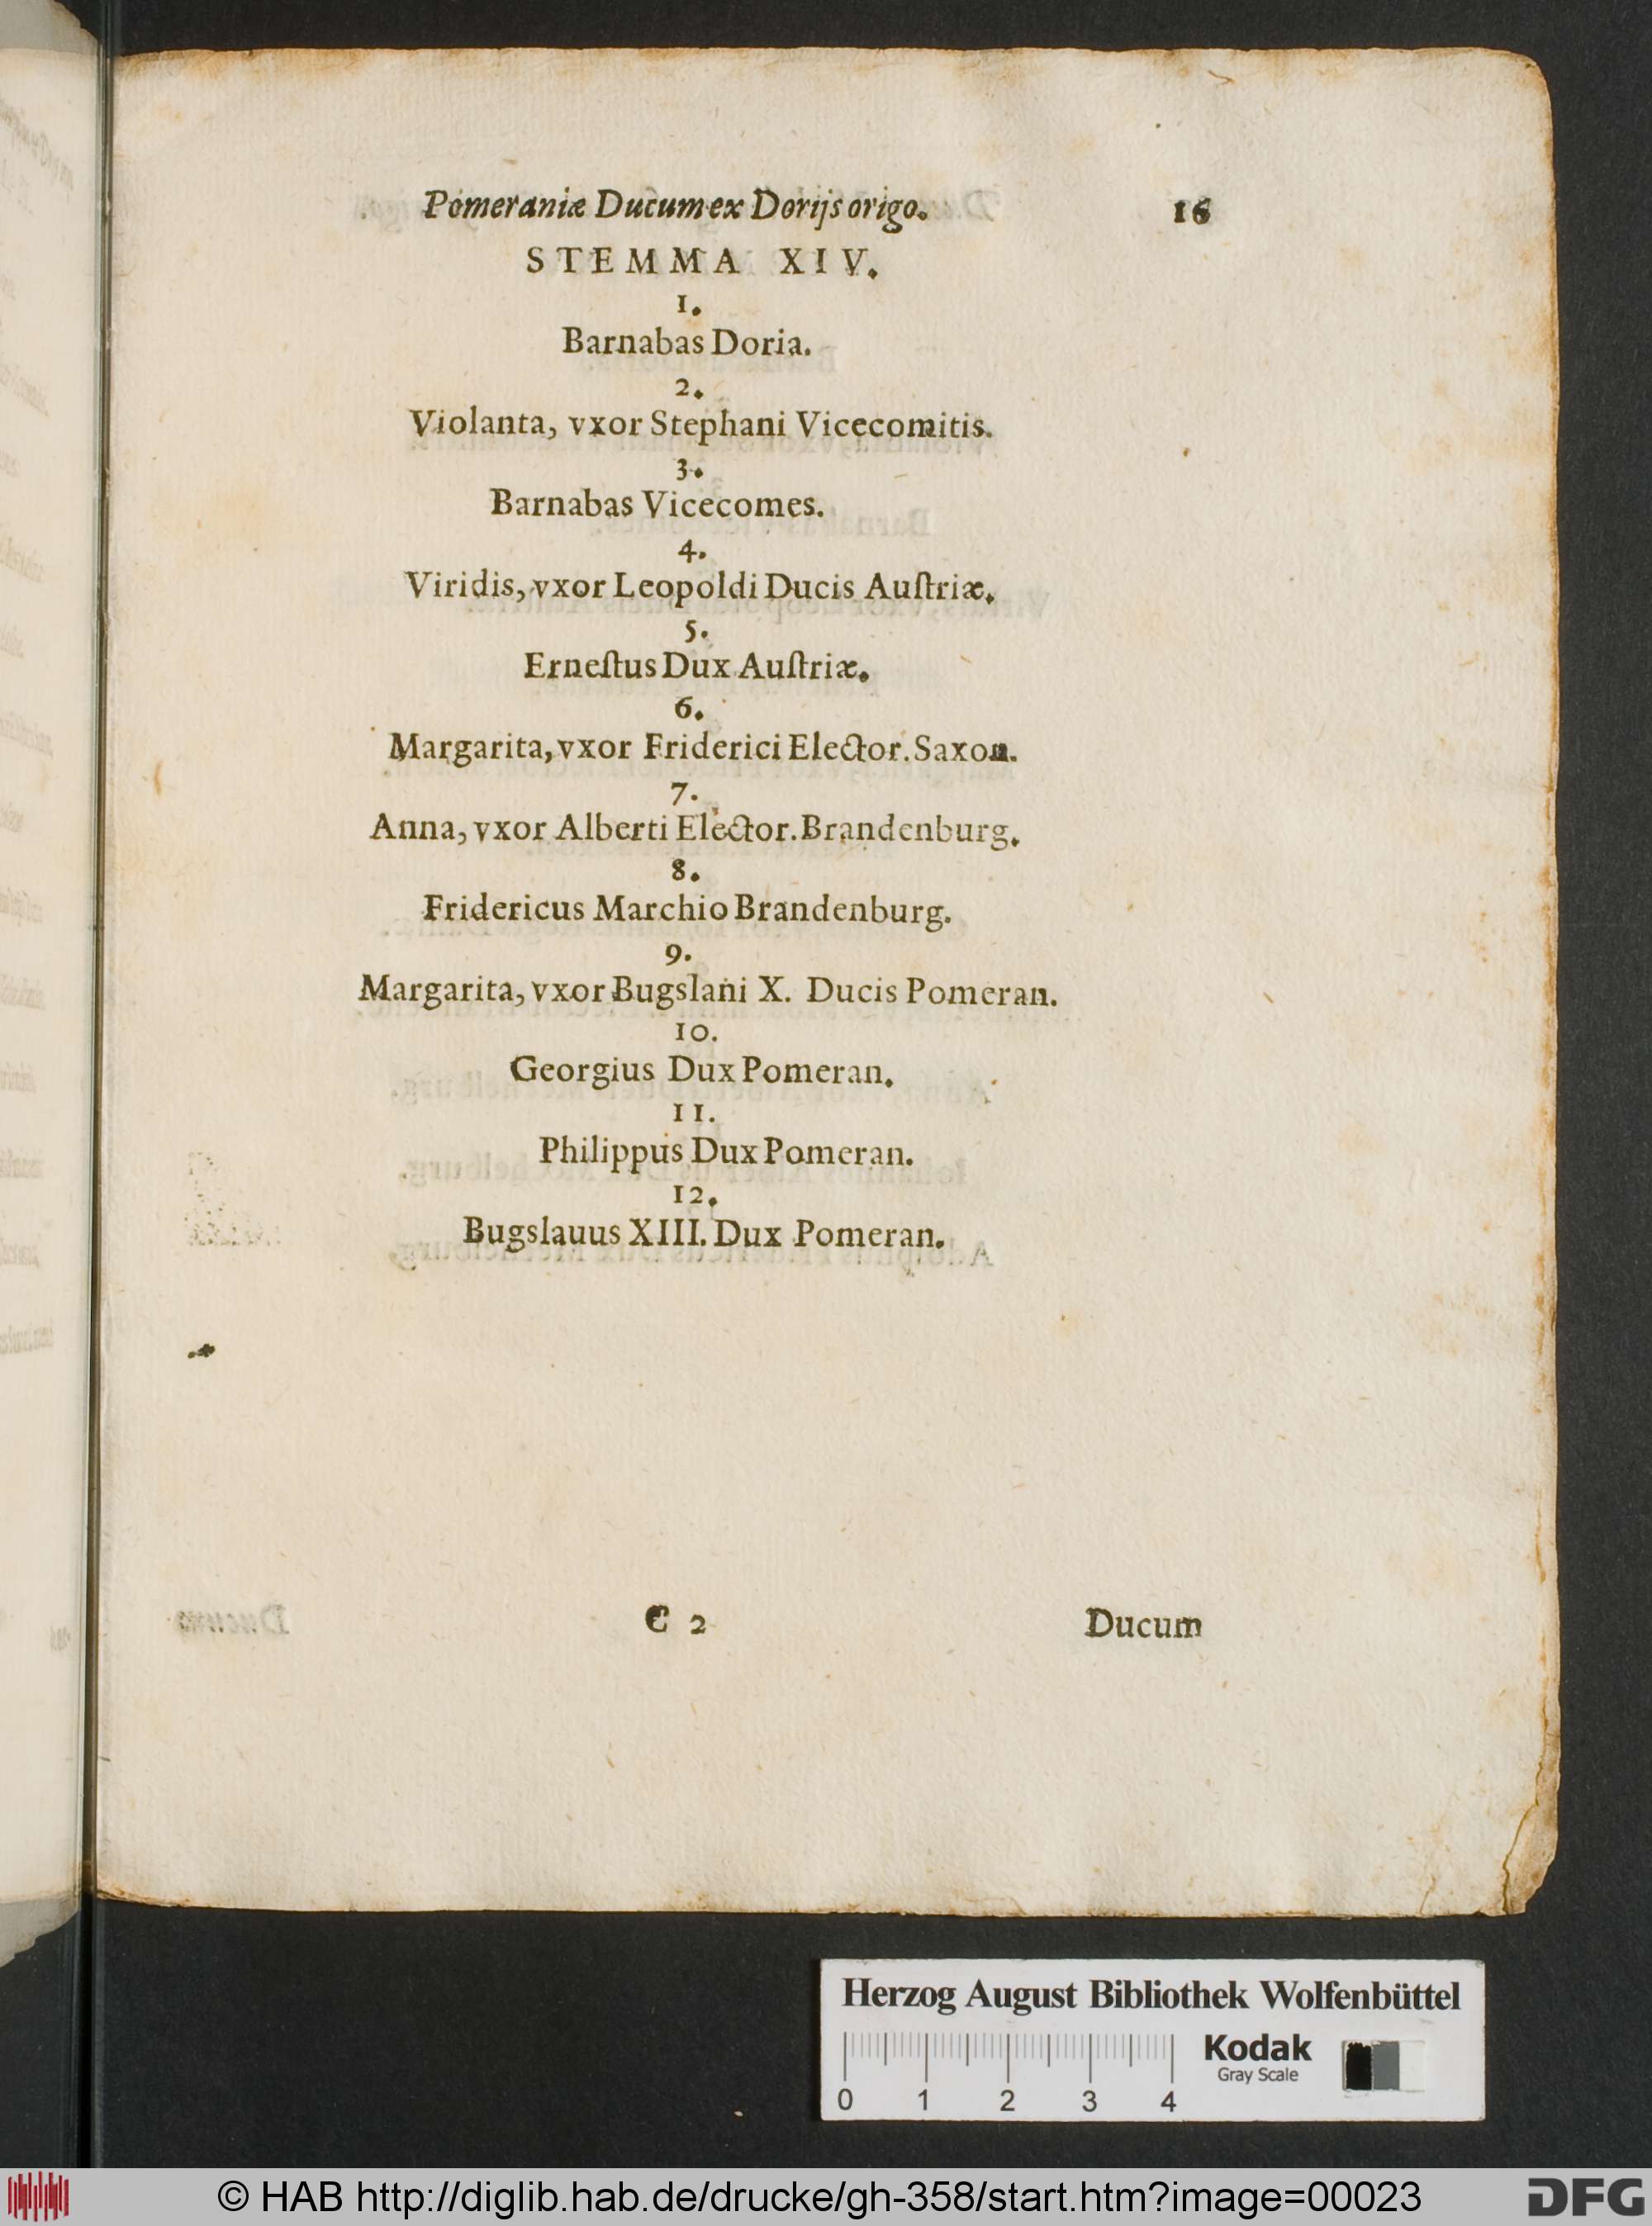 Pomeraniæ Ducum ex Dorijs origo. 16
STEMMA XIV.
1.
Barnabas Doria.
2.
Violanta, vxor Stephani Vicecomitis.
3.
Barnabas Vicecomes.
4.
Viridis, vxor Leopoldi Ducis Auſtriæ.
5.
Erneſtus Dux Auſtriæ.
6.
Margarita, vxor Friderici Elector. Saxon.
7.
Anna, vxor Alberti Elector. Brandenburg.
8.
Fridericus Marchio Brandenburg.
9.
Margarita, vxor Bugslani X. Ducis Pomeran.
10.
Georgius Dux Pomeran.
11.
Philippus Dux Pomeran.
12.
Bugslauus XIII. Dux Pomeran.
C 2 Ducum
Herzog August Bibliothek Wolfenbüttel
Kodak
Gray Scale
0 1 2 3 4
© HAB http://diglib.hab.de/drucke/gh-358/start.htm?image=00023
DFG